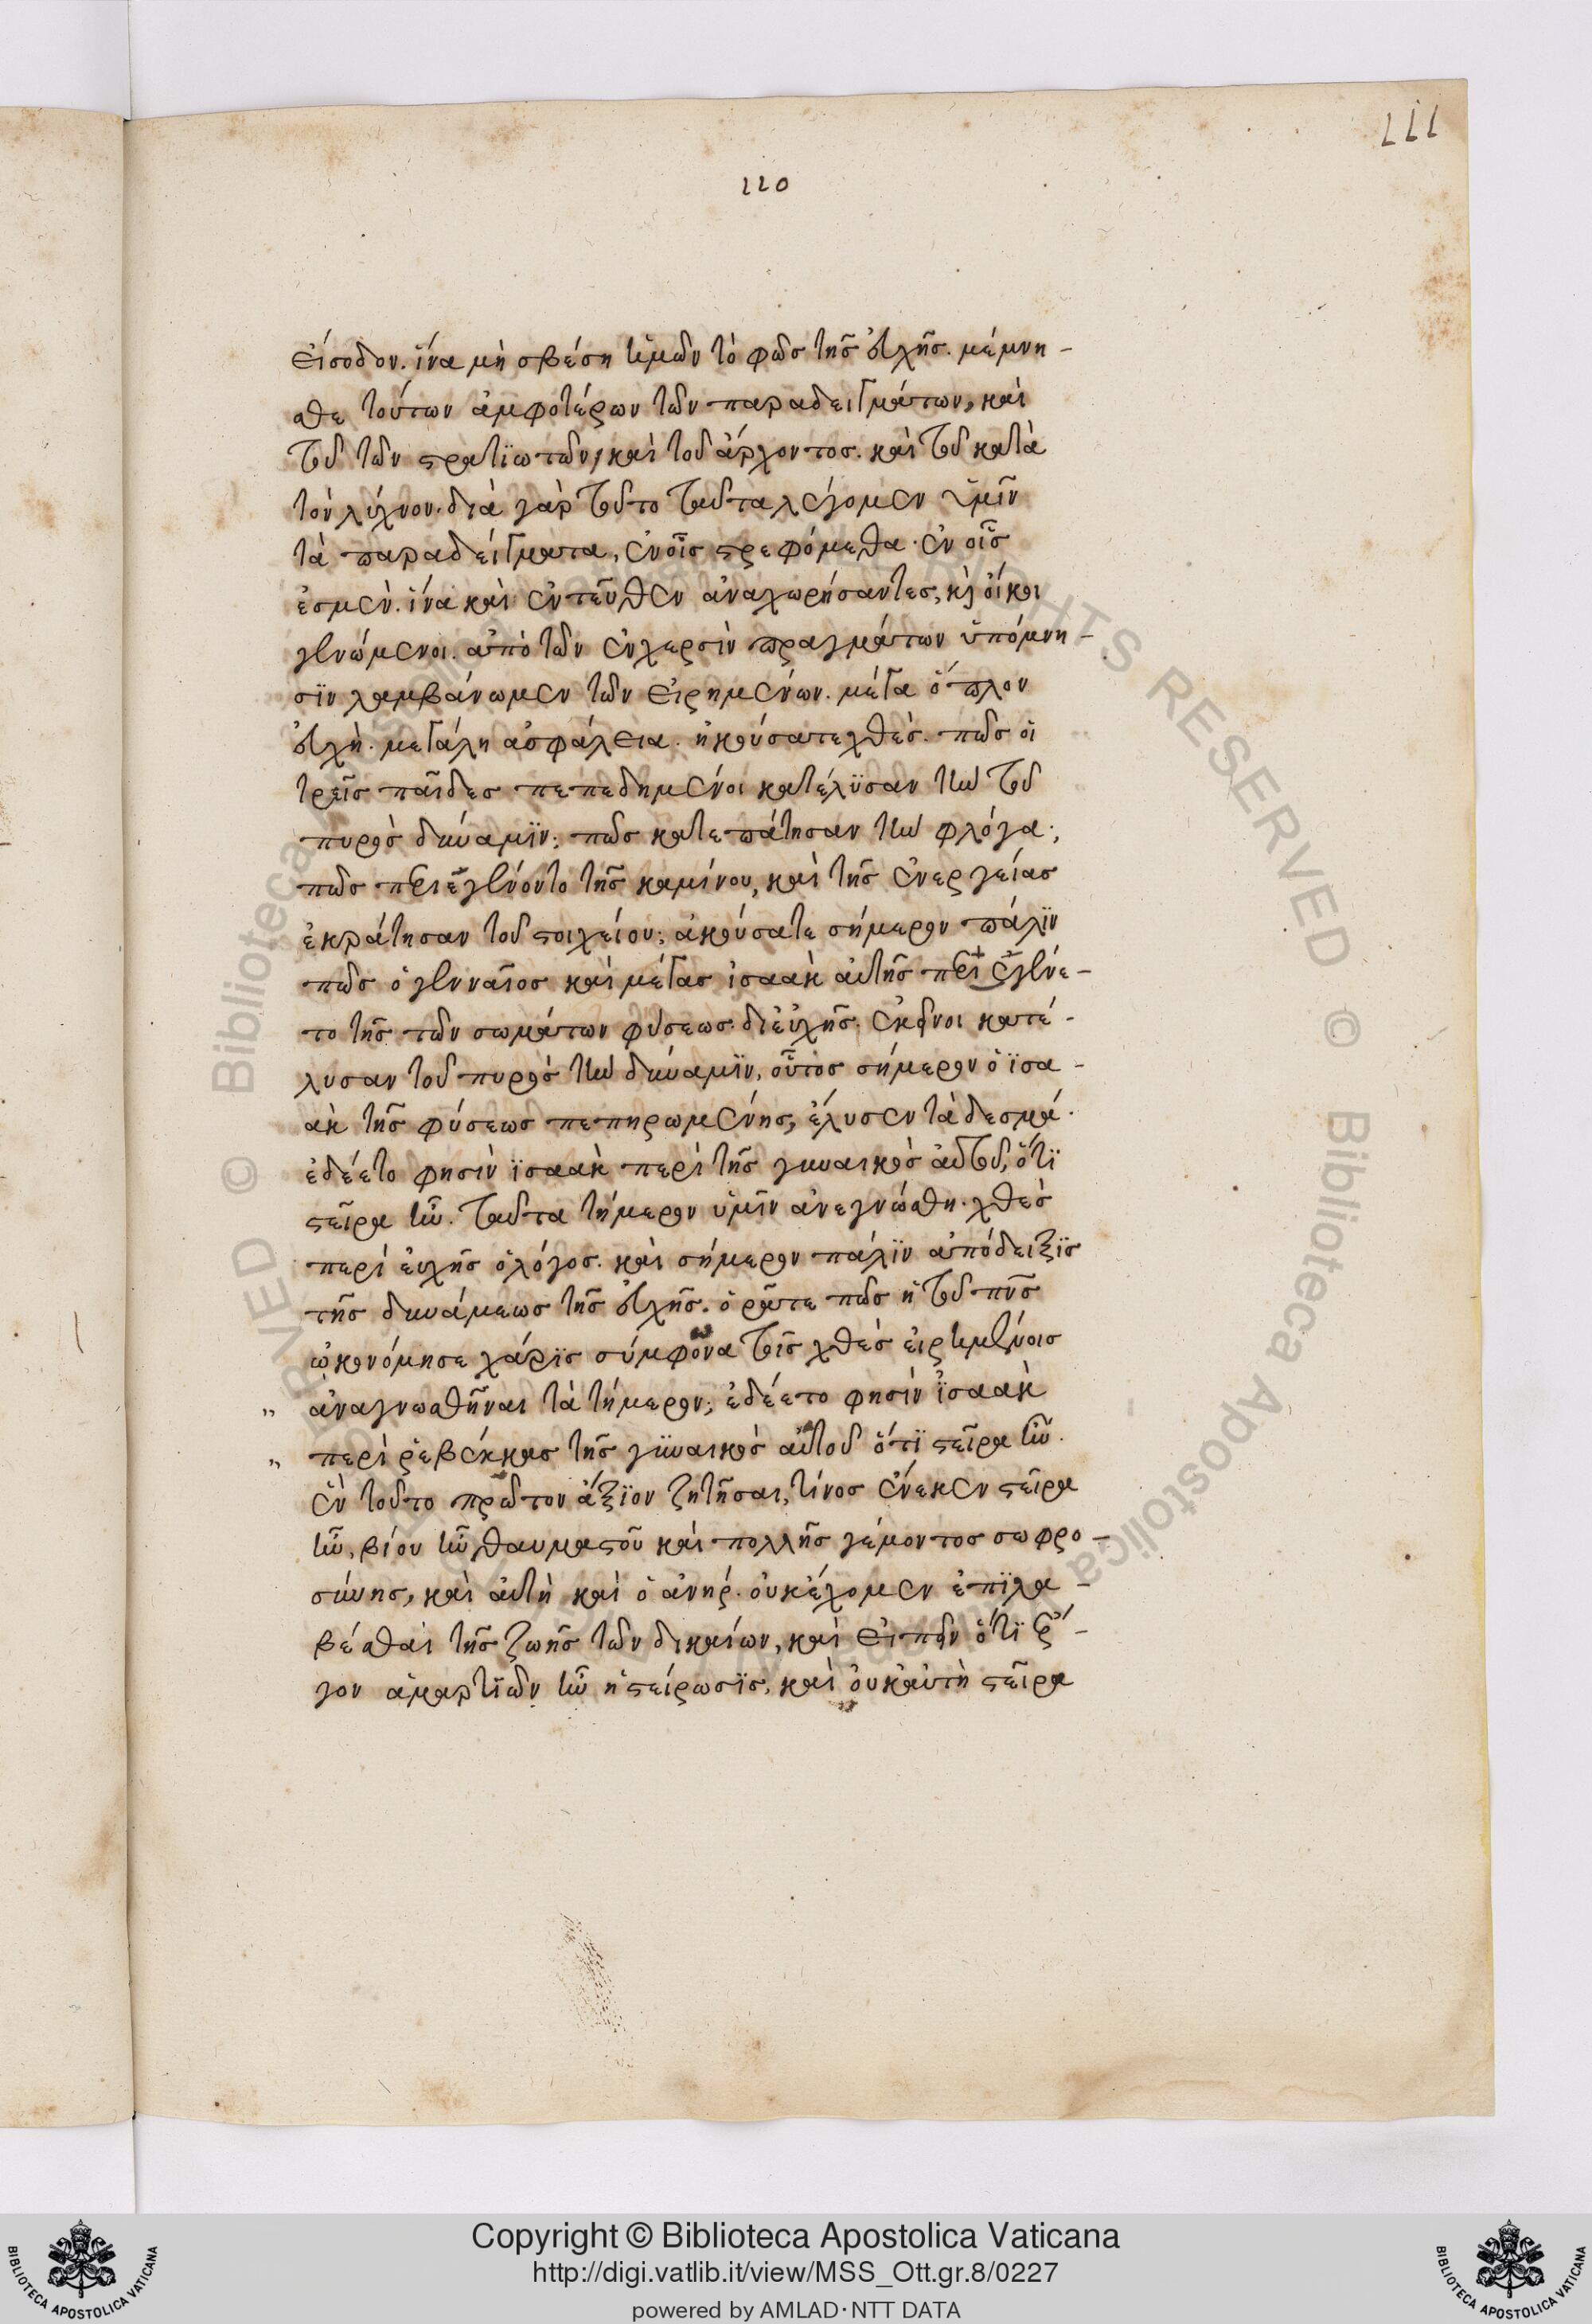 111
110
εἴσοδον. ἵνα μὴ σβέση ἡμῶν τὸ φῶς τῆς εὐχῆς. μέμνη-
σθε τούτων ἀμφοτέρων τῶν παραδειγμάτων, καὶ
τοῦ τῶν στρατϊωτῶν, καὶ τοῦ ἄρχοντος. καὶ τοῦ κατὰ
τὸν λύχνον. διὰ γὰρ τοῦτο ταῦτα λέγομεν ὑμῖν
τὰ παραδείγματα, ἐν οἷς στρεφόμεθα. ἐν οἷς
ἐσμὲν. ἵνα καὶ ἐντεῦθεν ἀναχωρήσαντες, κὶ οἴκοι
γενώμενοι. ἀπὸ τῶν ἐν χερσὶν πραγμάτων ὑπόμνη-
σϊν λαμβάνωμεν τῶν εἰρημένων. μέγα ὅπλον
εὐχὴ. μεγάλη ἀσφάλεια. ἠκούσατε χθὲς. πῶς οἱ
τρεῖς παῖδες πεπεδημένοι κατέλϋσαν τὴν τοῦ
πυρὸς δύναμϊν; πῶς κατεπάτησαν τὴν φλόγα;
πῶς περιεγένοντο τῆς καμίνου, καὶ τῆς ἐνεργείας
ἐκράτησαν τοῦ στοιχείου; ἀκούσατε σήμερον πάλϊν
πῶς ὁ γενναῖος καὶ μέγας ἰσαὰκ αὐτῆς περιεγένε-
το τῆς τῶν σωμάτων φύσεως. δι εὐχῆς. ἐκεῖνοι κατέ-
λυσαν τοῦ πυρὸς τὴν δύναμϊν, οὗτος σήμερον ὁ ϊσα-
ὰκ τῆς φύσεως πεπηρωμένης, ἔλυσεν τὰ δεσμά.
ἐδέετο φησὶν ϊσαὰκ περὶ τῆς γυναικὸς αὐτοῦ, ὅτϊ
στεῖρα ἦν. ταῦτα τήμερον ὑμῖν ἀνεγνώσθη. χθὲς
περὶ εὐχῆς ὁ λόγος. καὶ σήμερον πάλϊν ἀπόδειξϊς
τῆς δυνάμεως τῆς εὐχῆς. ὁρᾶτε πῶς ἡ τοῦ πνς
ὠκονόμησε χάρϊς σύμφωνα τοῖς χθὲς εἰρημένοις
" ἀναγνωσθῆναι τὰ τήμερον; ἐδέετο φησὶν ϊσαὰκ
" περὶ ῥεβέκκας τῆς γϋναικὸς αὐτοῦ ὅτϊ στεῖρα ἦν.
ἐν τοῦτο πρῶτον ἄξϊον ζητῆσαι, τίνος ἕνεκεν στεῖρα
ἦν, βίου ἦν θαυμαστοῦ καὶ πολλῆς γέμοντος σωφρο-
σύνης, καὶ αὐτὴ καὶ ὁ ἀνήρ. οὐκ ἔχομεν ἐπϊλα-
βέσθαι τῆς ζωῆς τῶν δικαίων, καὶ εἰπεῖν ὅτϊ ἔρ-
γον ἁμαρτϊῶν ἦν ἡ στείρωσϊς, καὶ οὐκ αὐτὴ στεῖρα
Copyright © Biblioteca Apostolica Vaticana
http://digi.vatlib.it/view/MSS_Ott.gr.8/0227
powered by AMLAD·NTT DATA